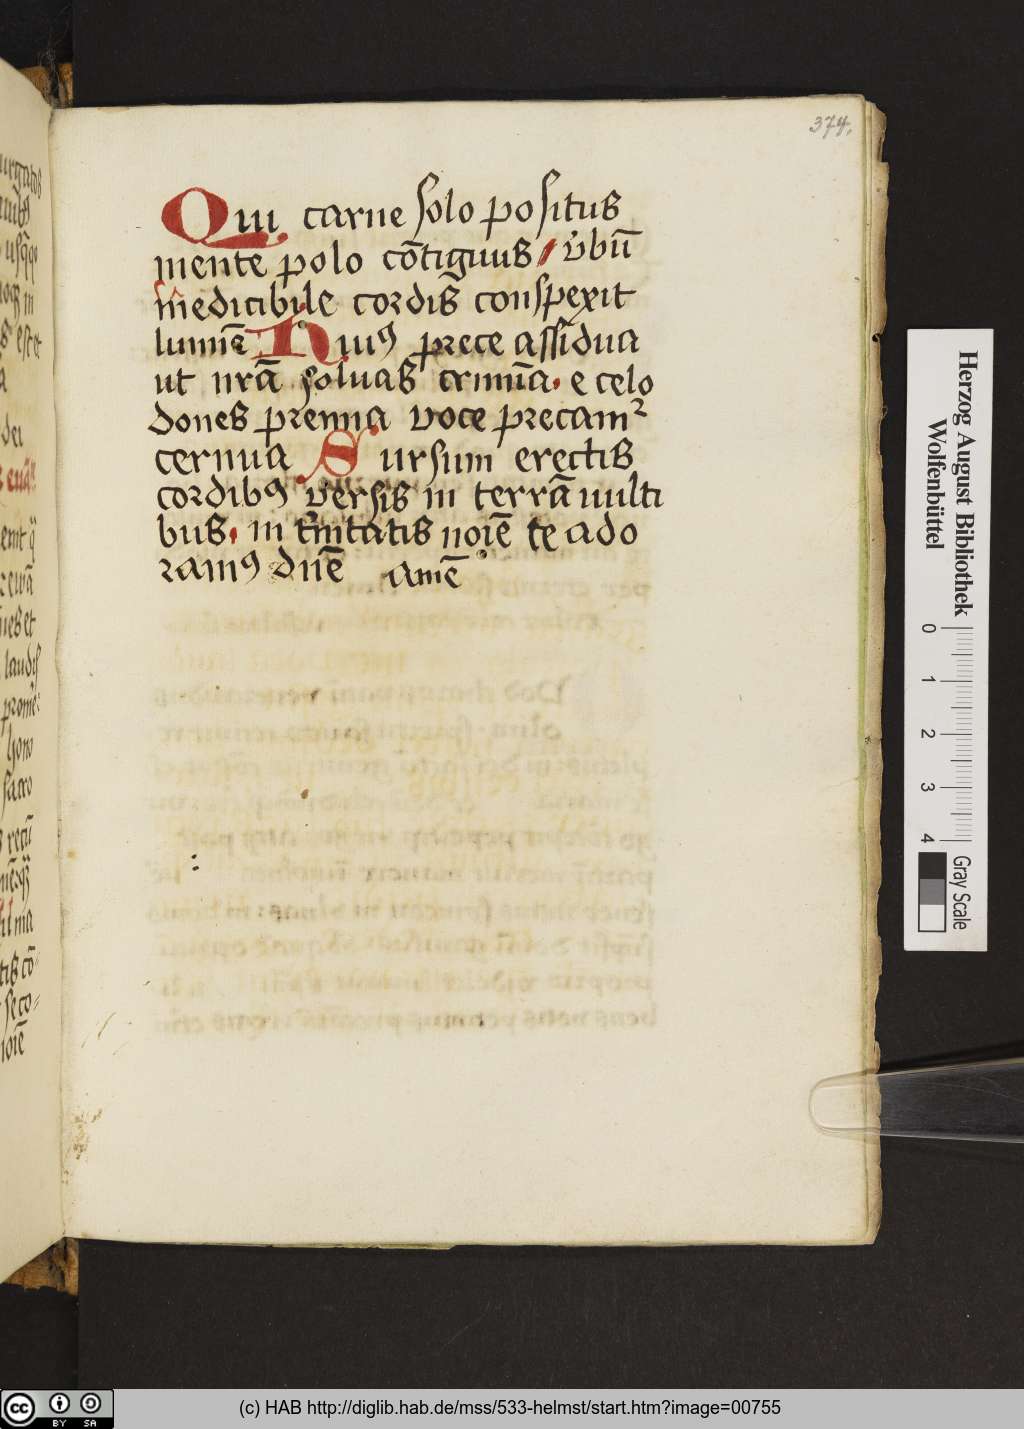 374.
Qui carne solo positus
mente polo cōtiguus / v̓bū
inedicibile cordis conspexit
lumīe Huiꝰ prece assidua
ut nrā soluas crimīa. e celo
dones premia voce precamꝛ
cernua Sursum erectis
cordibꝰ versis in terrā uulti
bus. in tͥnitatis noīe te ado
ramꝰ dn̄e amē
Herzog August Bibliothek
Wolfenbüttel
0 1 2 3 4
Gray Scale
cc BY SA
(c) HAB http://diglib.hab.de/mss/533-helmst/start.htm?image=00755